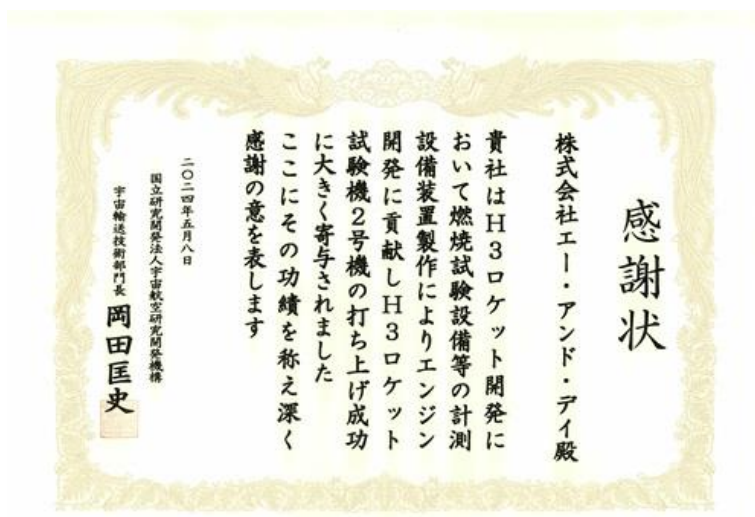 感謝状
株式会社エー・アンド・デイ殿
貴社はH3ロケット開発に
おいて燃焼試験設備等の計測
設備装置製作によりエンジン
開発に貢献しH3ロケット
試験機2号機の打ち上げ成功
に大きく寄与されました
ここにその功績を称え深く
感謝の意を表します
二〇二四年五月八日
国立研究開発法人宇宙航空研究開発機構
宇宙輸送技術部門長 岡田匡史